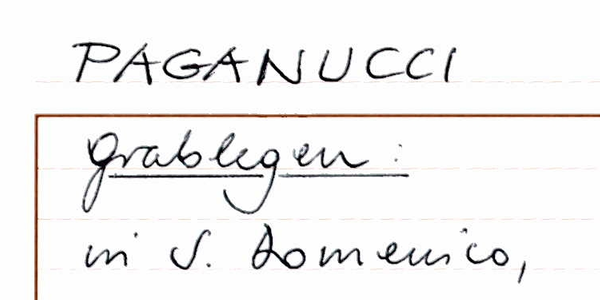 PAGANUCCI
Grablegen:
in S. Domenico,